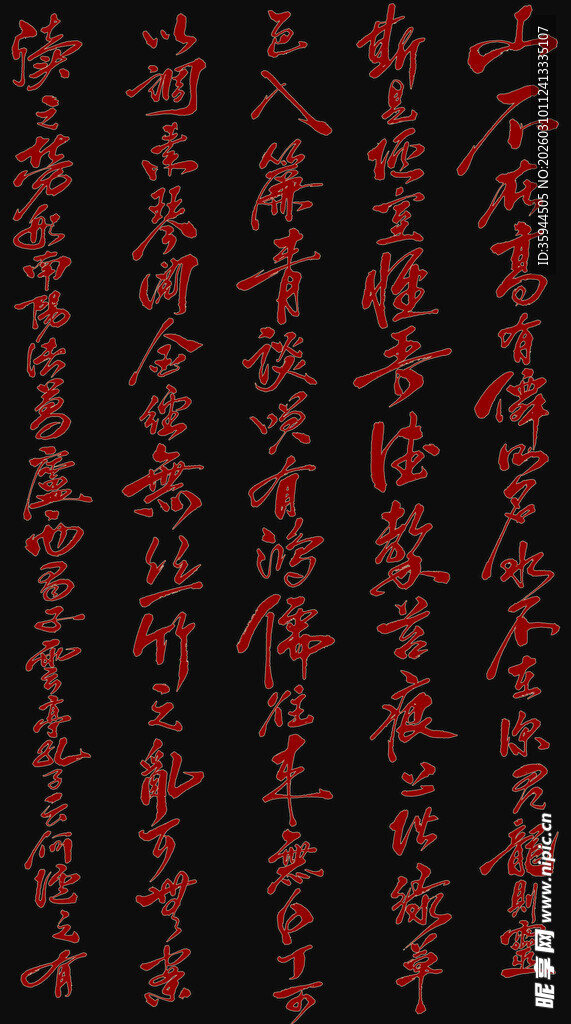 山不在高有僊則名水不在深有龍則靈
斯是陋室惟吾德馨苔痕上階綠草
色入簾青談笑有鴻儒往來無白丁可
以調素琴閱金經無絲竹之亂耳無案
牘之勞形南陽諸葛廬西蜀子雲亭孔子云何陋之有
ID:35944505 NO:20260310112413335107
昵享网 www.nipic.cn